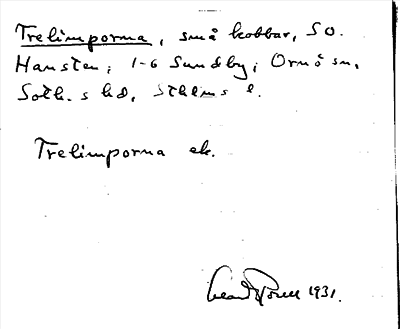 Trelimporna, små kobbar, SO.
Hansten; 1-6 Sundby; Ornö sn,
Soth. s hd, Sthlms l.
Trelimporna ek.
1931.